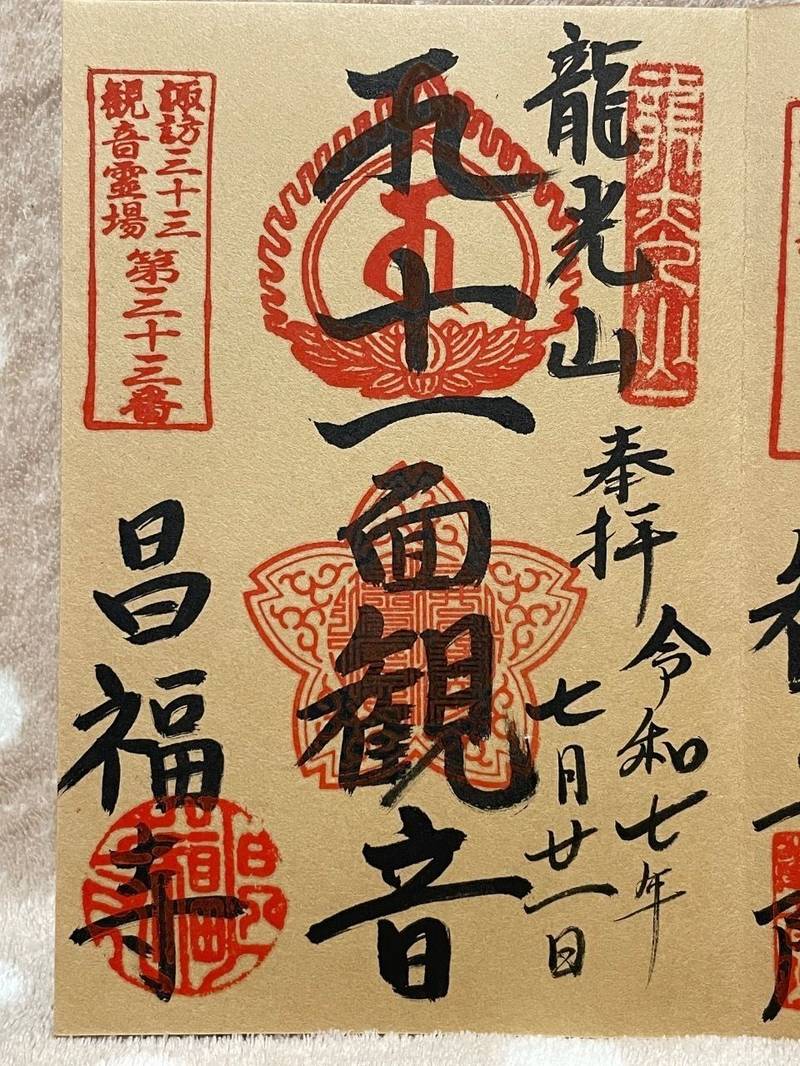 龍光山
龍光山
奉拝
令和七年
七月廿一日
十一面観音
諏訪三十三
観音霊場
第三十三番
昌福寺